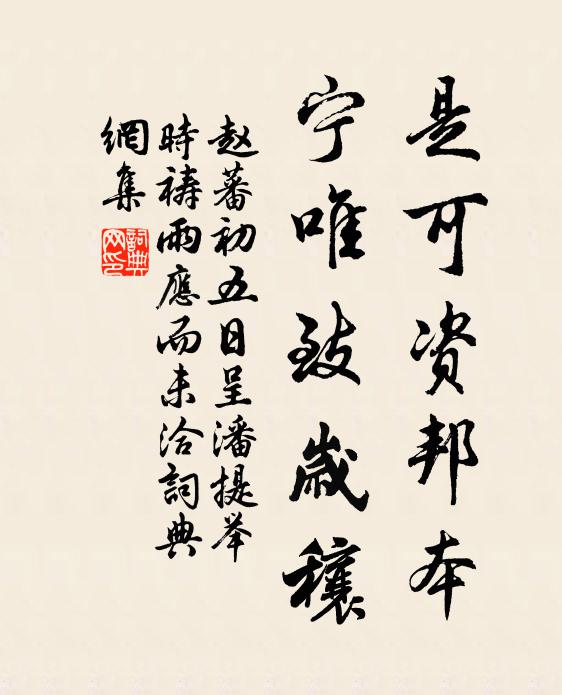 是可资邦本
宁唯致歲穰
赵蕃初五日呈潘提举
時祷雨應而未洽詞典
網集
詞典網印